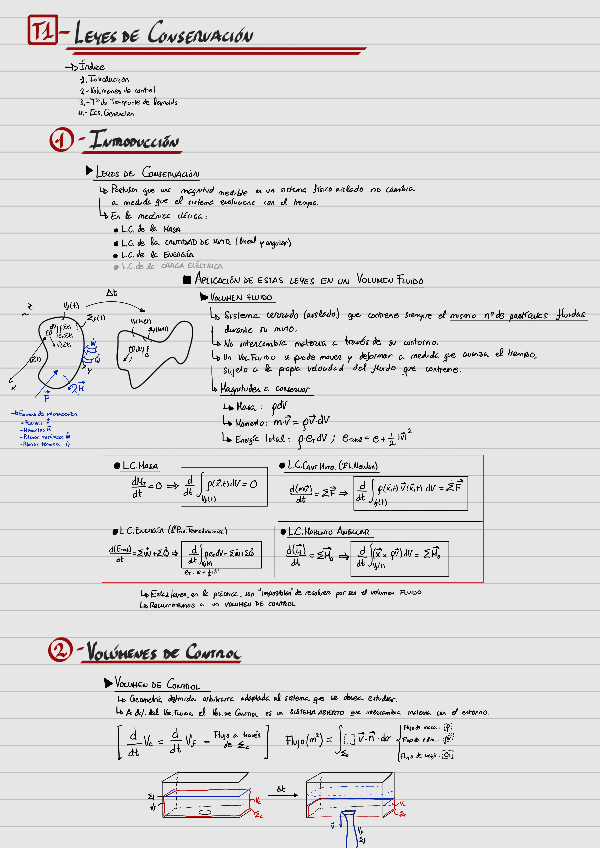 T1 - LEYES DE CONSERVACIÓN
→ Índice
1. Introducción
2.- Volúmenes de control
3.- Tª de Transporte de Reynolds
4.- Ecs. Generales
1 - INTRODUCCIÓN
▶ LEYES DE CONSERVACIÓN
↳ Postulan que una magnitud medible en un sistema físico aislado no cambia
a medida que el sistema evoluciona con el tiempo.
↳ En la mecánica clásica:
• L.C. de la MASA
• L.C. de la CANTIDAD DE MVTO. (lineal y angular)
• L.C. de la ENERGÍA
• L.C. de la CARGA ELÉCTRICA
■ APLICACIÓN DE ESTAS LEYES EN UN VOLUMEN FLUIDO
Δt
▶ VOLUMEN FLUIDO
↳ Sistema cerrado (aislado) que contiene siempre el mismo nº de partículas fluidas
durante su mvto.
↳ No intercambia materia a través de su contorno.
↳ Un Vol. Fluido se puede mover y deformar a medida que avanza el tiempo,
sujeto a la propia velocidad del fluido que contiene.
↳ Magnitudes a conservar
↳ Masa: ρdV
↳ Momento: m·v⃗ = ρv⃗·dV
↳ Energía total: ρ·e_T dV ; e_total = e + 1/2 |v⃗|²
→ Formas de interacción
- Fuerzas F⃗
- Momentos M⃗
- Potencia mecánica Ẇ
- Potencia térmica Q̇
• L.C. MASA
dM_f/dt = 0 ⇒ d/dt ∫_{V_f(t)} ρ(x⃗,t) dV = 0
• L.C. CANT. MVTO. (2ª L. Newton)
d(mv⃗)/dt = ΣF⃗ ⇒ d/dt ∫_{V_f(t)} ρ(x⃗,t) v⃗(x⃗,t) dV = ΣF⃗
• L.C. ENERGÍA (1er Pro. Termodinámica)
d(E_total)/dt = ΣẆ + ΣQ̇ ⇒ d/dt ∫_{V_f(t)} ρe_T dV = ΣẆ + ΣQ̇
e_T = e + 1/2 |v⃗|²
• L.C. MOMENTO ANGULAR
d(L⃗)/dt = ΣM⃗₀ ⇒ d/dt ∫_{V_f(t)} (x⃗ × ρv⃗) dV = ΣM⃗₀
↳ Estas leyes, en la práctica, son "imposibles" de resolver por ser el volumen FLUIDO
↳ Recurriremos a un VOLUMEN DE CONTROL
2 - VOLÚMENES DE CONTROL
▶ VOLUMEN DE CONTROL
↳ Geometría definida arbitraria adaptada al sistema que se desea estudiar.
↳ A dif. del Vol. Fluido, el Vol. de Control es un SISTEMA ABIERTO que intercambia materia con el entorno.
[ d/dt V_c = d/dt V_f - Flujo a través de Σ_c ]
Flujo (m²) = ∫_{Σ_c} [..] v⃗·n⃗·dσ
Flujo de masa: [ρ]
Flujo de c.mv.: [ρv⃗]
Flujo de energ.: [ρe]
Δt